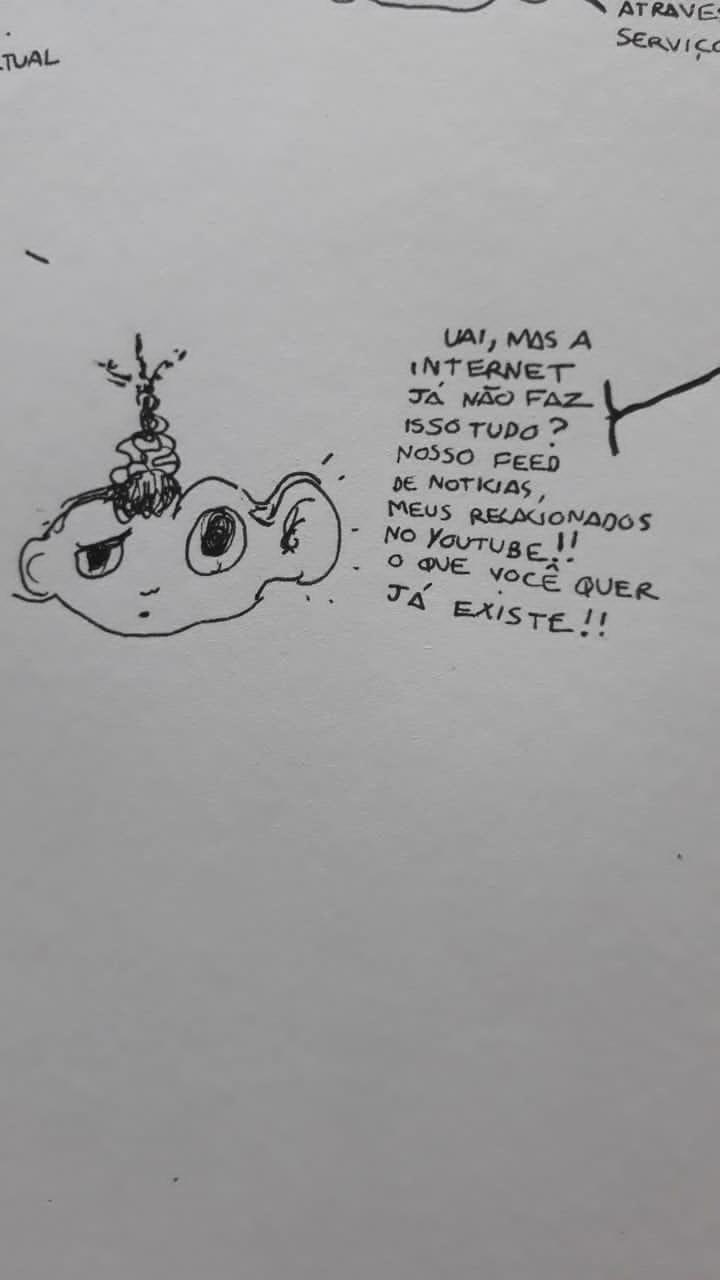 ATRAVES
SERVIÇO
TUAL
UAI, MAS A
INTERNET
JÁ NÃO FAZ
ISSO TUDO?
NOSSO FEED
DE NOTICIAS,
MEUS RELACIONADOS
NO YOUTUBE!!
O QUE VOCÊ QUER
JÁ EXISTE!!